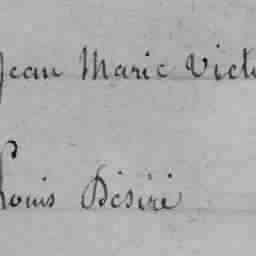 Jean Marie Victo
Louis Désiré